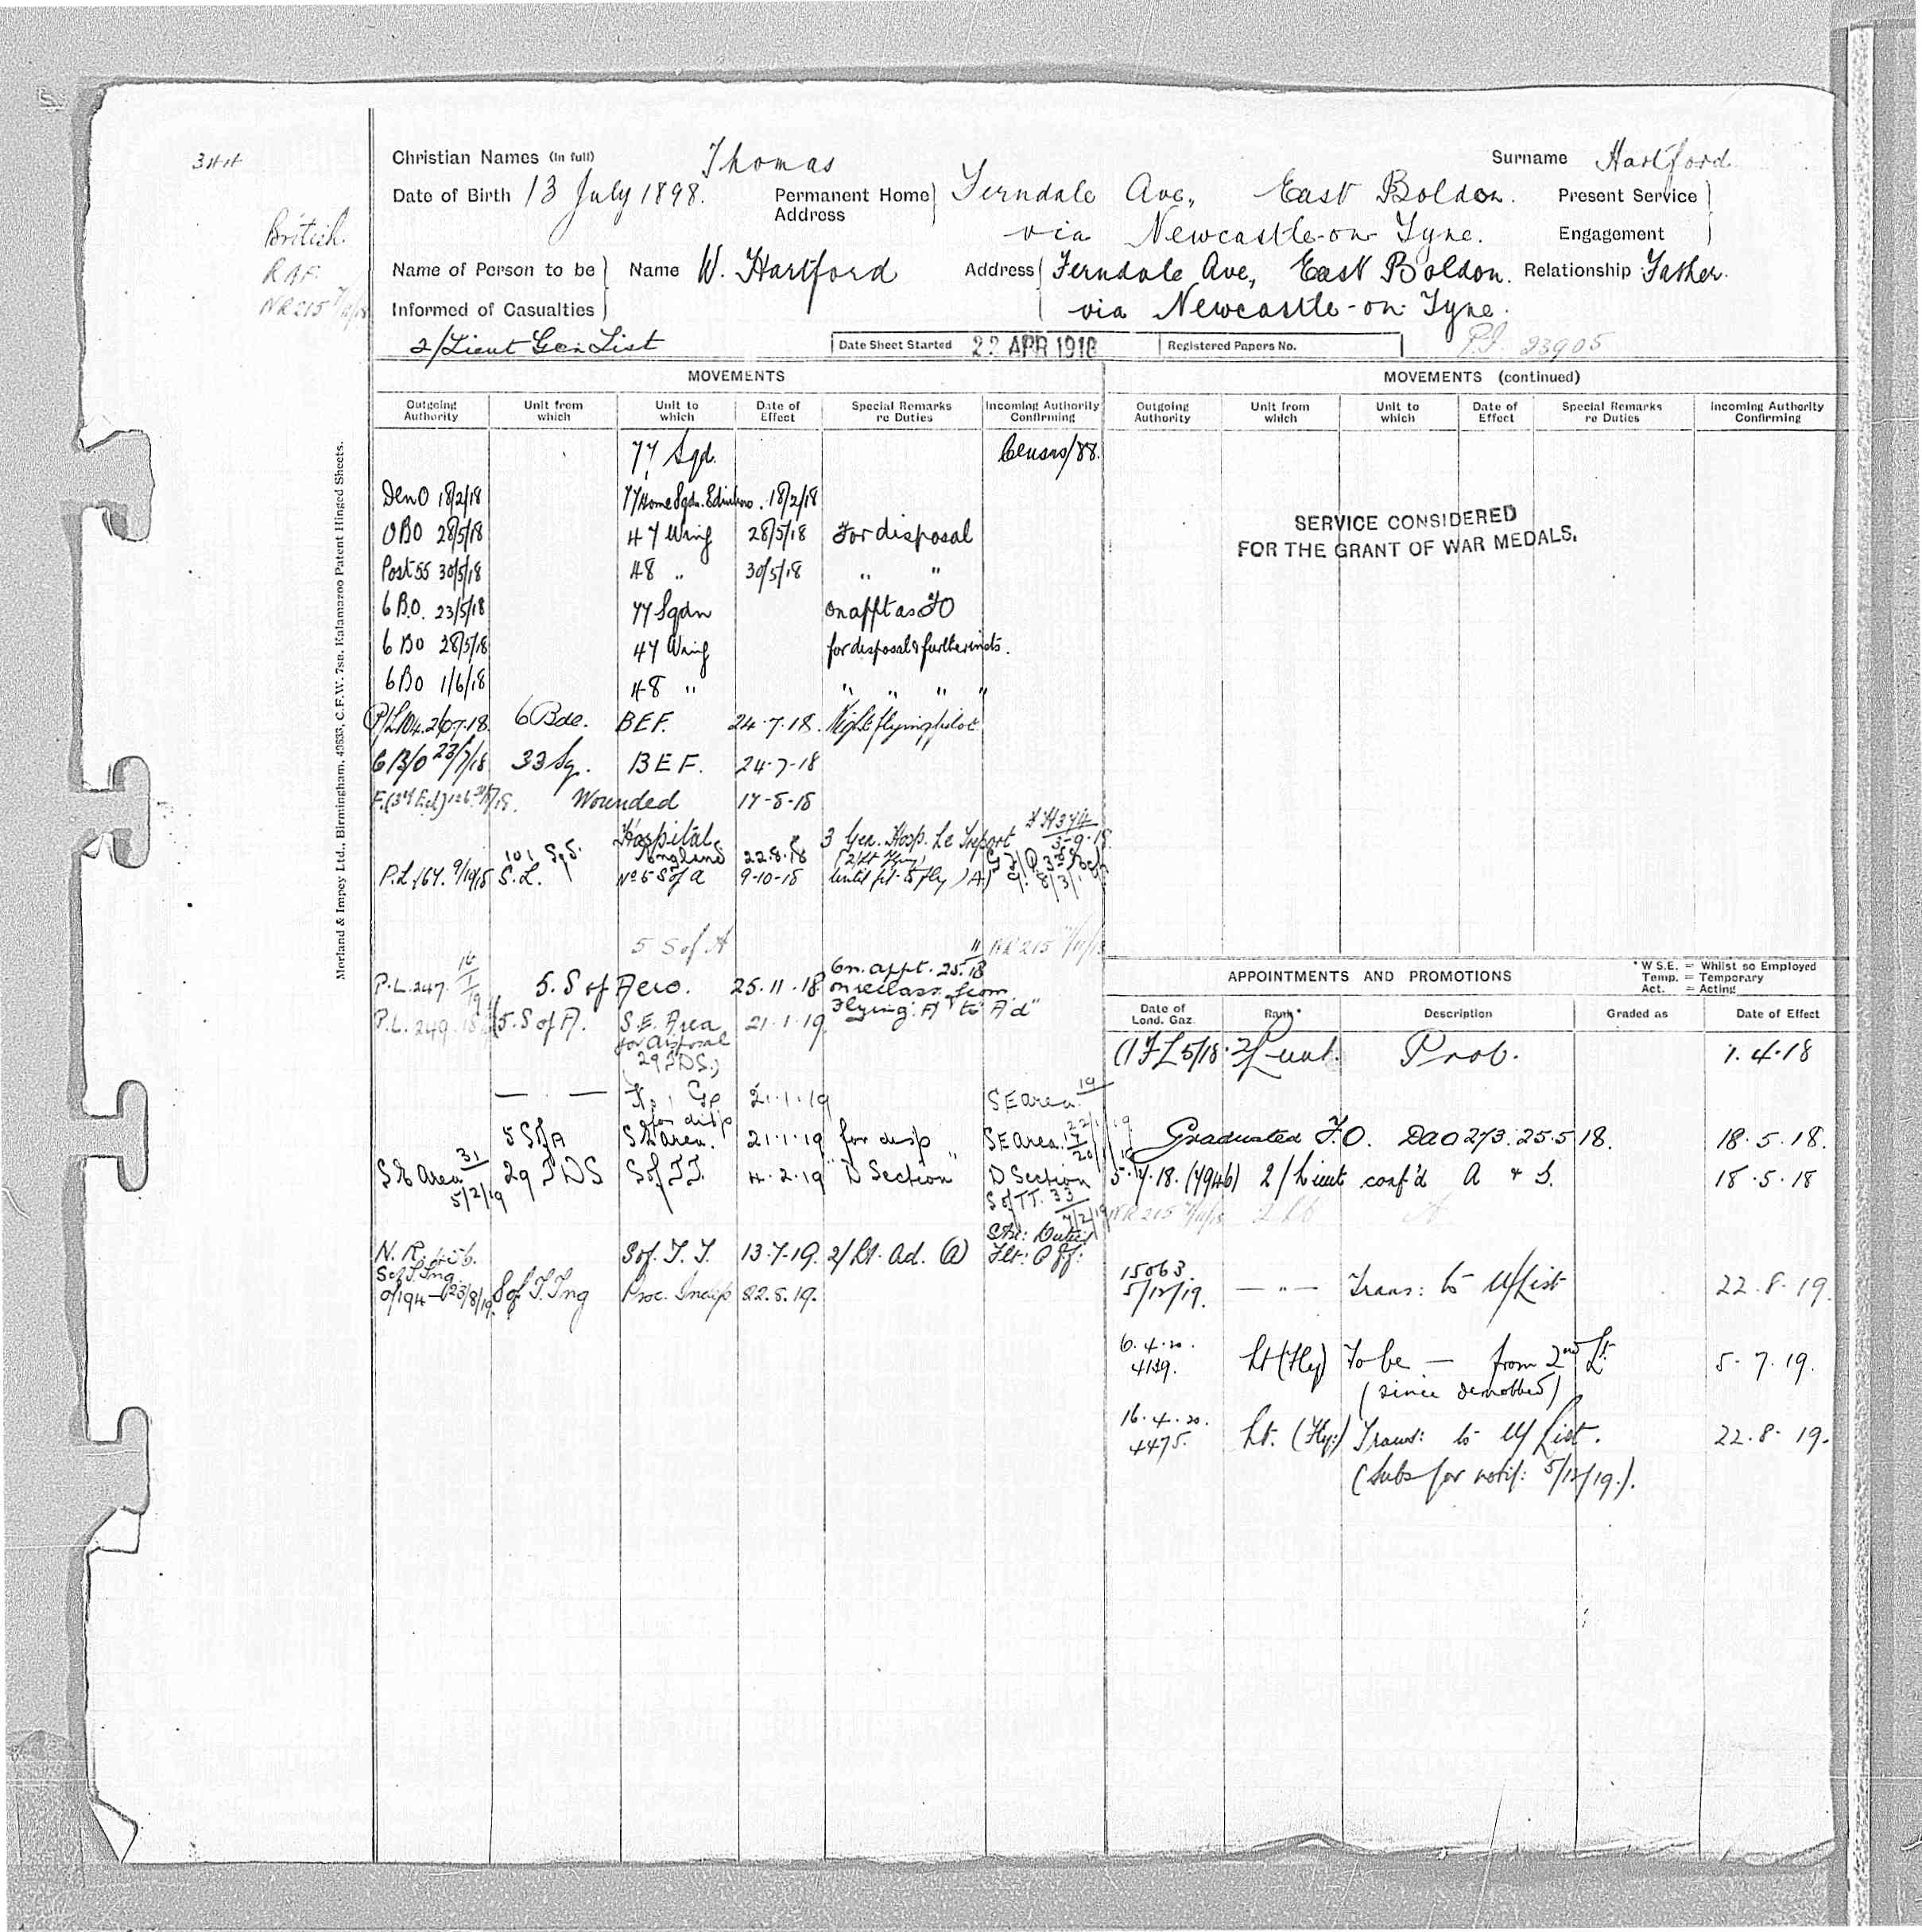 Christian Names (in full) Thomas Surname Hartford
Date of Birth 13 July 1898. Permanent Home Address Ferndale Ave, East Boldon. Present Service
via Newcastle-on-Tyne. Engagement
British.
RAF.
NR 215
Name of Person to be Informed of Casualties Name W. Hartford Address Ferndale Ave, East Boldon. Relationship Father.
via Newcastle-on-Tyne.
2/Lieut Gen List Date Sheet Started 22 APR 1918 Registered Papers No. P.I. 23905
Morland & Impey Ltd., Birmingham, C.F.W. 7sn. Kalamazoo Patent Hinged Sheets.
MOVEMENTS
Outgoing Authority Unit from which Unit to which Date of Effect Special Remarks re Duties Incoming Authority Confirming
77 Sqd. Census/88.
18/2/18 77 Home Sqdn. Edinboro. 18/2/18
OBO 28/5/18 47 Wing 28/5/18 For disposal
Post 55 30/5/18 48 " 30/5/18 " "
6 B.O. 23/5/18 77 Sqdn on appt as FO
6 BO 28/5/18 47 Wing for disposal & further insts.
6 BO 1/6/18 48 " " " " "
6 Bde. BEF. 24.7.18. Night flying pilot
6 B/O 23/7/18 33 Sq. BEF. 24-7-18
Wounded 17-8-18
Hospital 3 Gen. Hosp. Le Treport
101 Sq. England 22.8.18
P.L. 167. 9/10/18 S.L. No 5 S of A 9-10-18 until fit to fly (A)
5 S of A " NR 215
P.L. 247. 5. S of Aero. 25.11.18 on appt. 25.18
on reclass. from
Flying "A" to "Ad"
P.L. 249. 5. S of A. S.E. Area 21.1.19
for disposal
29 TDS.)
— — Gp 21.1.19 SE Area 19
for disp 22/1/19
5 S of A SE Area. 21.1.19 for disp SE Area.
SE Area 31 5/2/19 29 TDS S of TT. 4.2.19 "D Section" D Section
S of TT. 33
7/2/19
N.R. S of T.T. 13.7.19. 2/Lt. Ad. (A)
S of T. Tng. 23/8/19 S of T. Tng 22.8.19.
MOVEMENTS (continued)
Outgoing Authority Unit from which Unit to which Date of Effect Special Remarks re Duties Incoming Authority Confirming
SERVICE CONSIDERED
FOR THE GRANT OF WAR MEDALS.
APPOINTMENTS AND PROMOTIONS
* W.S.E. = Whilst so Employed
Temp. = Temporary
Act. = Acting
Date of Lond. Gaz. Rank* Description Graded as Date of Effect
2/Lieut. Prob. 1.4.18
Graduated F.O. DAO 273. 25.5.18. 18.5.18.
5.7.18. (7946) 2/Lieut conf'd A & S. 18.5.18
NR 215 2 Lt A
15063. 5/12/19. — " — Trans: to U/List 22.8.19.
6.4.20. 4139. Lt (Fly) To be — from 2nd Lt. 5.7.19.
(since demobbed)
16.4.20. 4475. Lt. (Fly:) Trans: to U/List. 22.8.19.
(Subs for notif: 5/12/19.).